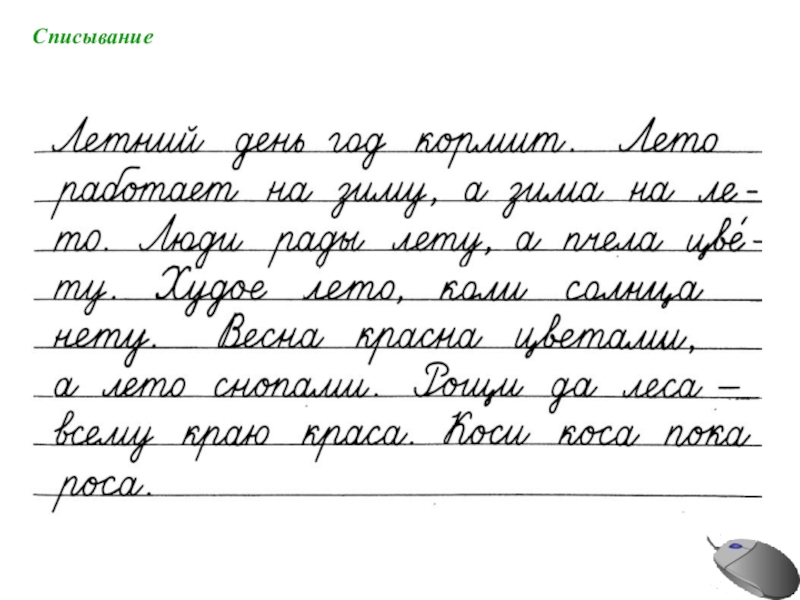 Списывание
Летний день год кормит. Лето
работает на зиму, а зима на ле-
то. Люди рады лету, а пчела цве́-
ту. Худое лето, коли солнца
нету. Весна красна цветами,
а лето снопами. Рощи да леса –
всему краю краса. Коси коса пока
роса.